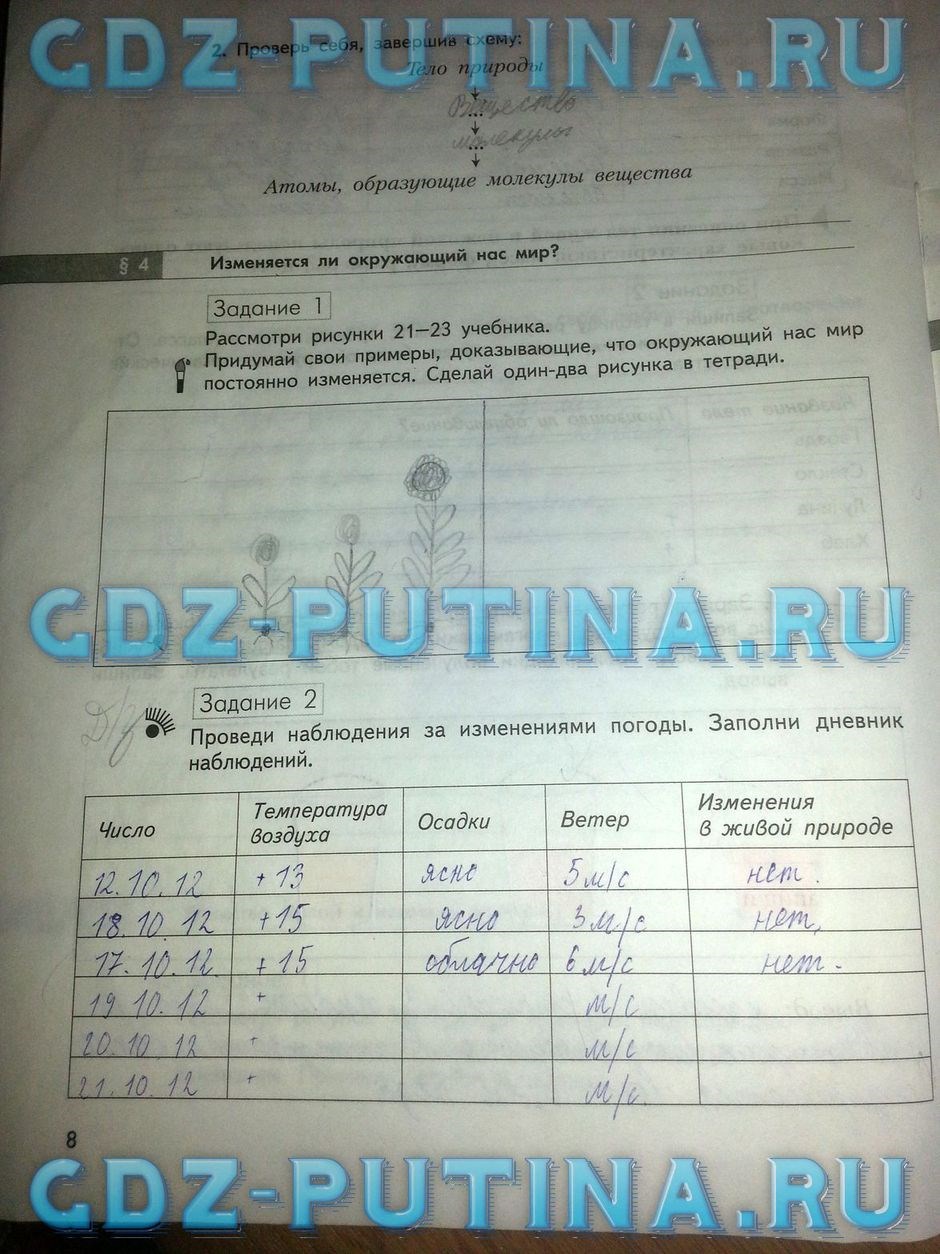 GDZ-PUTINA.RU
2. Проверь себя, завершив схему:
Тело природы
Вещество
...
молекулы
...
Атомы, образующие молекулы вещества
§ 4 Изменяется ли окружающий нас мир?
Задание 1
Рассмотри рисунки 21—23 учебника.
Придумай свои примеры, доказывающие, что окружающий нас мир
постоянно изменяется. Сделай один-два рисунка в тетради.
GDZ-PUTINA.RU
Д/з
Задание 2
Проведи наблюдения за изменениями погоды. Заполни дневник
наблюдений.
Число Температура воздуха Осадки Ветер Изменения в живой природе
12.10.12 +13 ясно 5 м/с нет.
18.10.12 +15 ясно 3 м/с нет.
17.10.12. +15 облачно 6 м/с нет.
19 10. 12 + м/с
20.10.12 + м/с
21.10.12 + м/с.
8
GDZ-PUTINA.RU